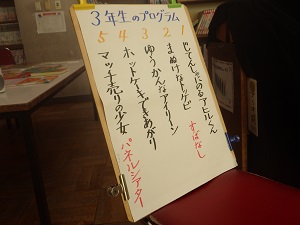 3年生のプログラム
1 じてんしゃにのるアヒルくん すばなし
2 まぬけなトッケビ
3 ゆうかんなアイリーン
4 ホットケーキできあがり
5 マッチ売りの少女 パネルシアター